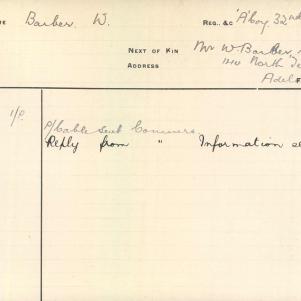 Barber. W. REG., &C 'A' Coy. 32nd
NEXT OF KIN Mr W Barber,
ADDRESS North Te
Adel
P/Cable sent Commrs
Reply from " Information